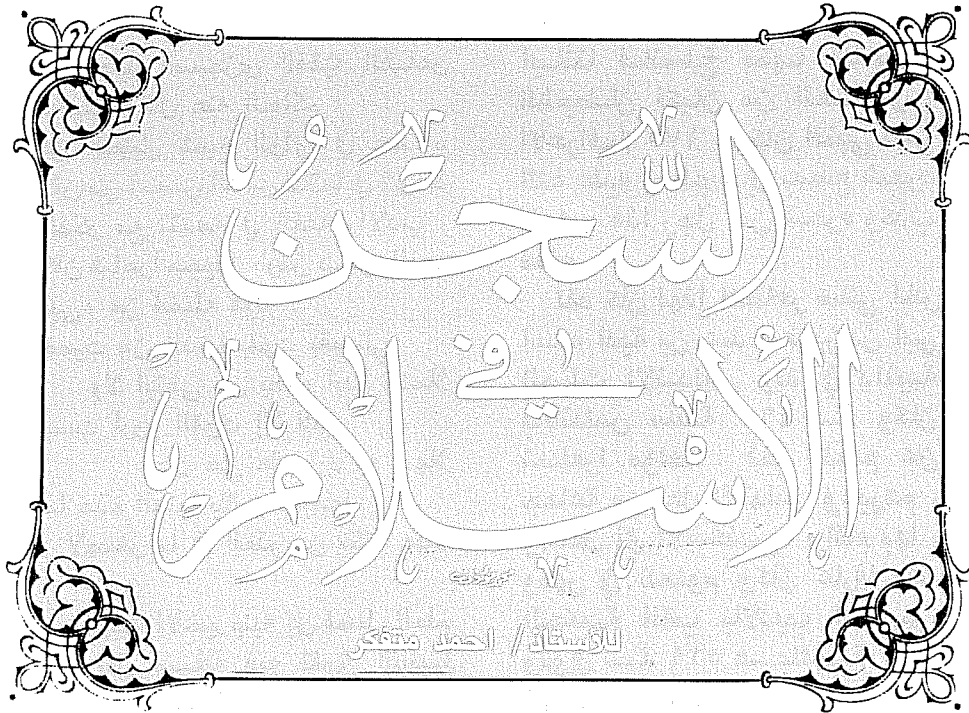 السجن
في
الإسلام
للأستاذ/ احمد متفكر